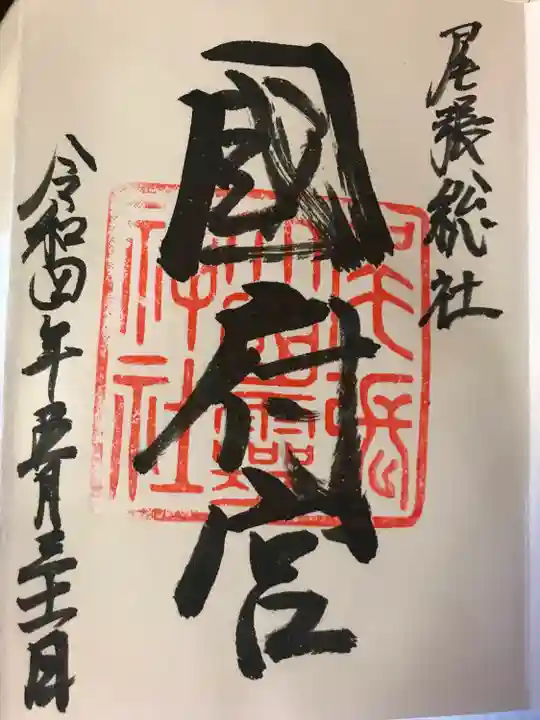 尾張総社
國府宮
令和四年五月三十一日
尾張
神社